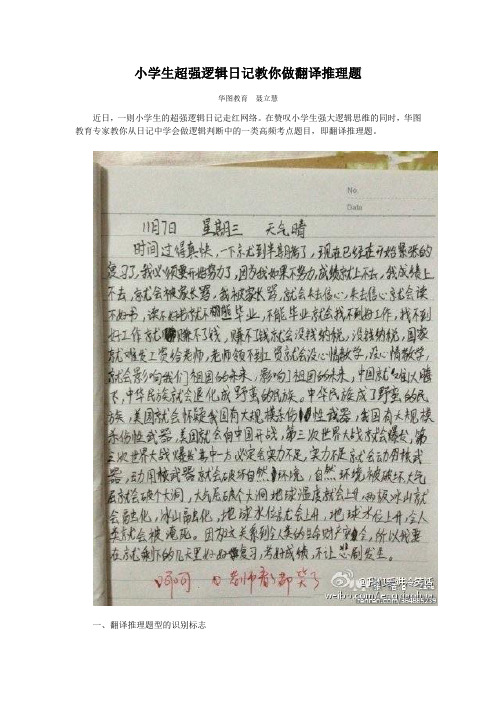 小学生超强逻辑日记教你做翻译推理题
华图教育 聂立慧
近日，一则小学生的超强逻辑日记走红网络。在赞叹小学生强大逻辑思维的同时，华图
教育专家教你从日记中学会做逻辑判断中的一类高频考点题目，即翻译推理题。
No.
Date
11月7日 星期三 天气晴
时间过得真快，一下尤到半期了，现在已经在开始紧张的
复习了，我必须要开始努力了，因为我如果不努力，成绩就上不去，我成绩上
不去，就会被家长骂，我被家长骂，就会失去信心，失去信心就会读
不好书，读不好书就不能毕业，不能毕业就会找不到好工作，找不到
好工作就赚不了钱，赚不了钱就会没钱纳税，没钱纳税，国家
就难发工资给老师，老师领不到工资就会没心情教学，没心情教学，
就会影响我们祖国的未来，影响了祖国的未来，中国就难以腾
飞，中华民族就会退化成野蛮的民族。中华民族成了野蛮的民
族，美国就会怀疑我国有大规模杀伤性武器，我国有大规模
杀伤性武器，美国就会向中国开战，第三次世界大战就会爆发，第
三次世界大战爆发其中一方必定会实力不足，实力不足就会动用核武
器，动用核武器就会破坏自然环境，自然环境被破坏大气
层就会破个大洞，大气层破个大洞地球温度就会上升，两极冰山就
会融化，冰山融化，地球水位就会上升，地球水位上升，全人
类就会被淹死。因为这关系到全人类的生命财产安全，所以我要
在剩下的几天里好好复习，考好成绩，不让悲剧发生。
呵呵 老师看了都笑了
一、翻译推理题型的识别标志